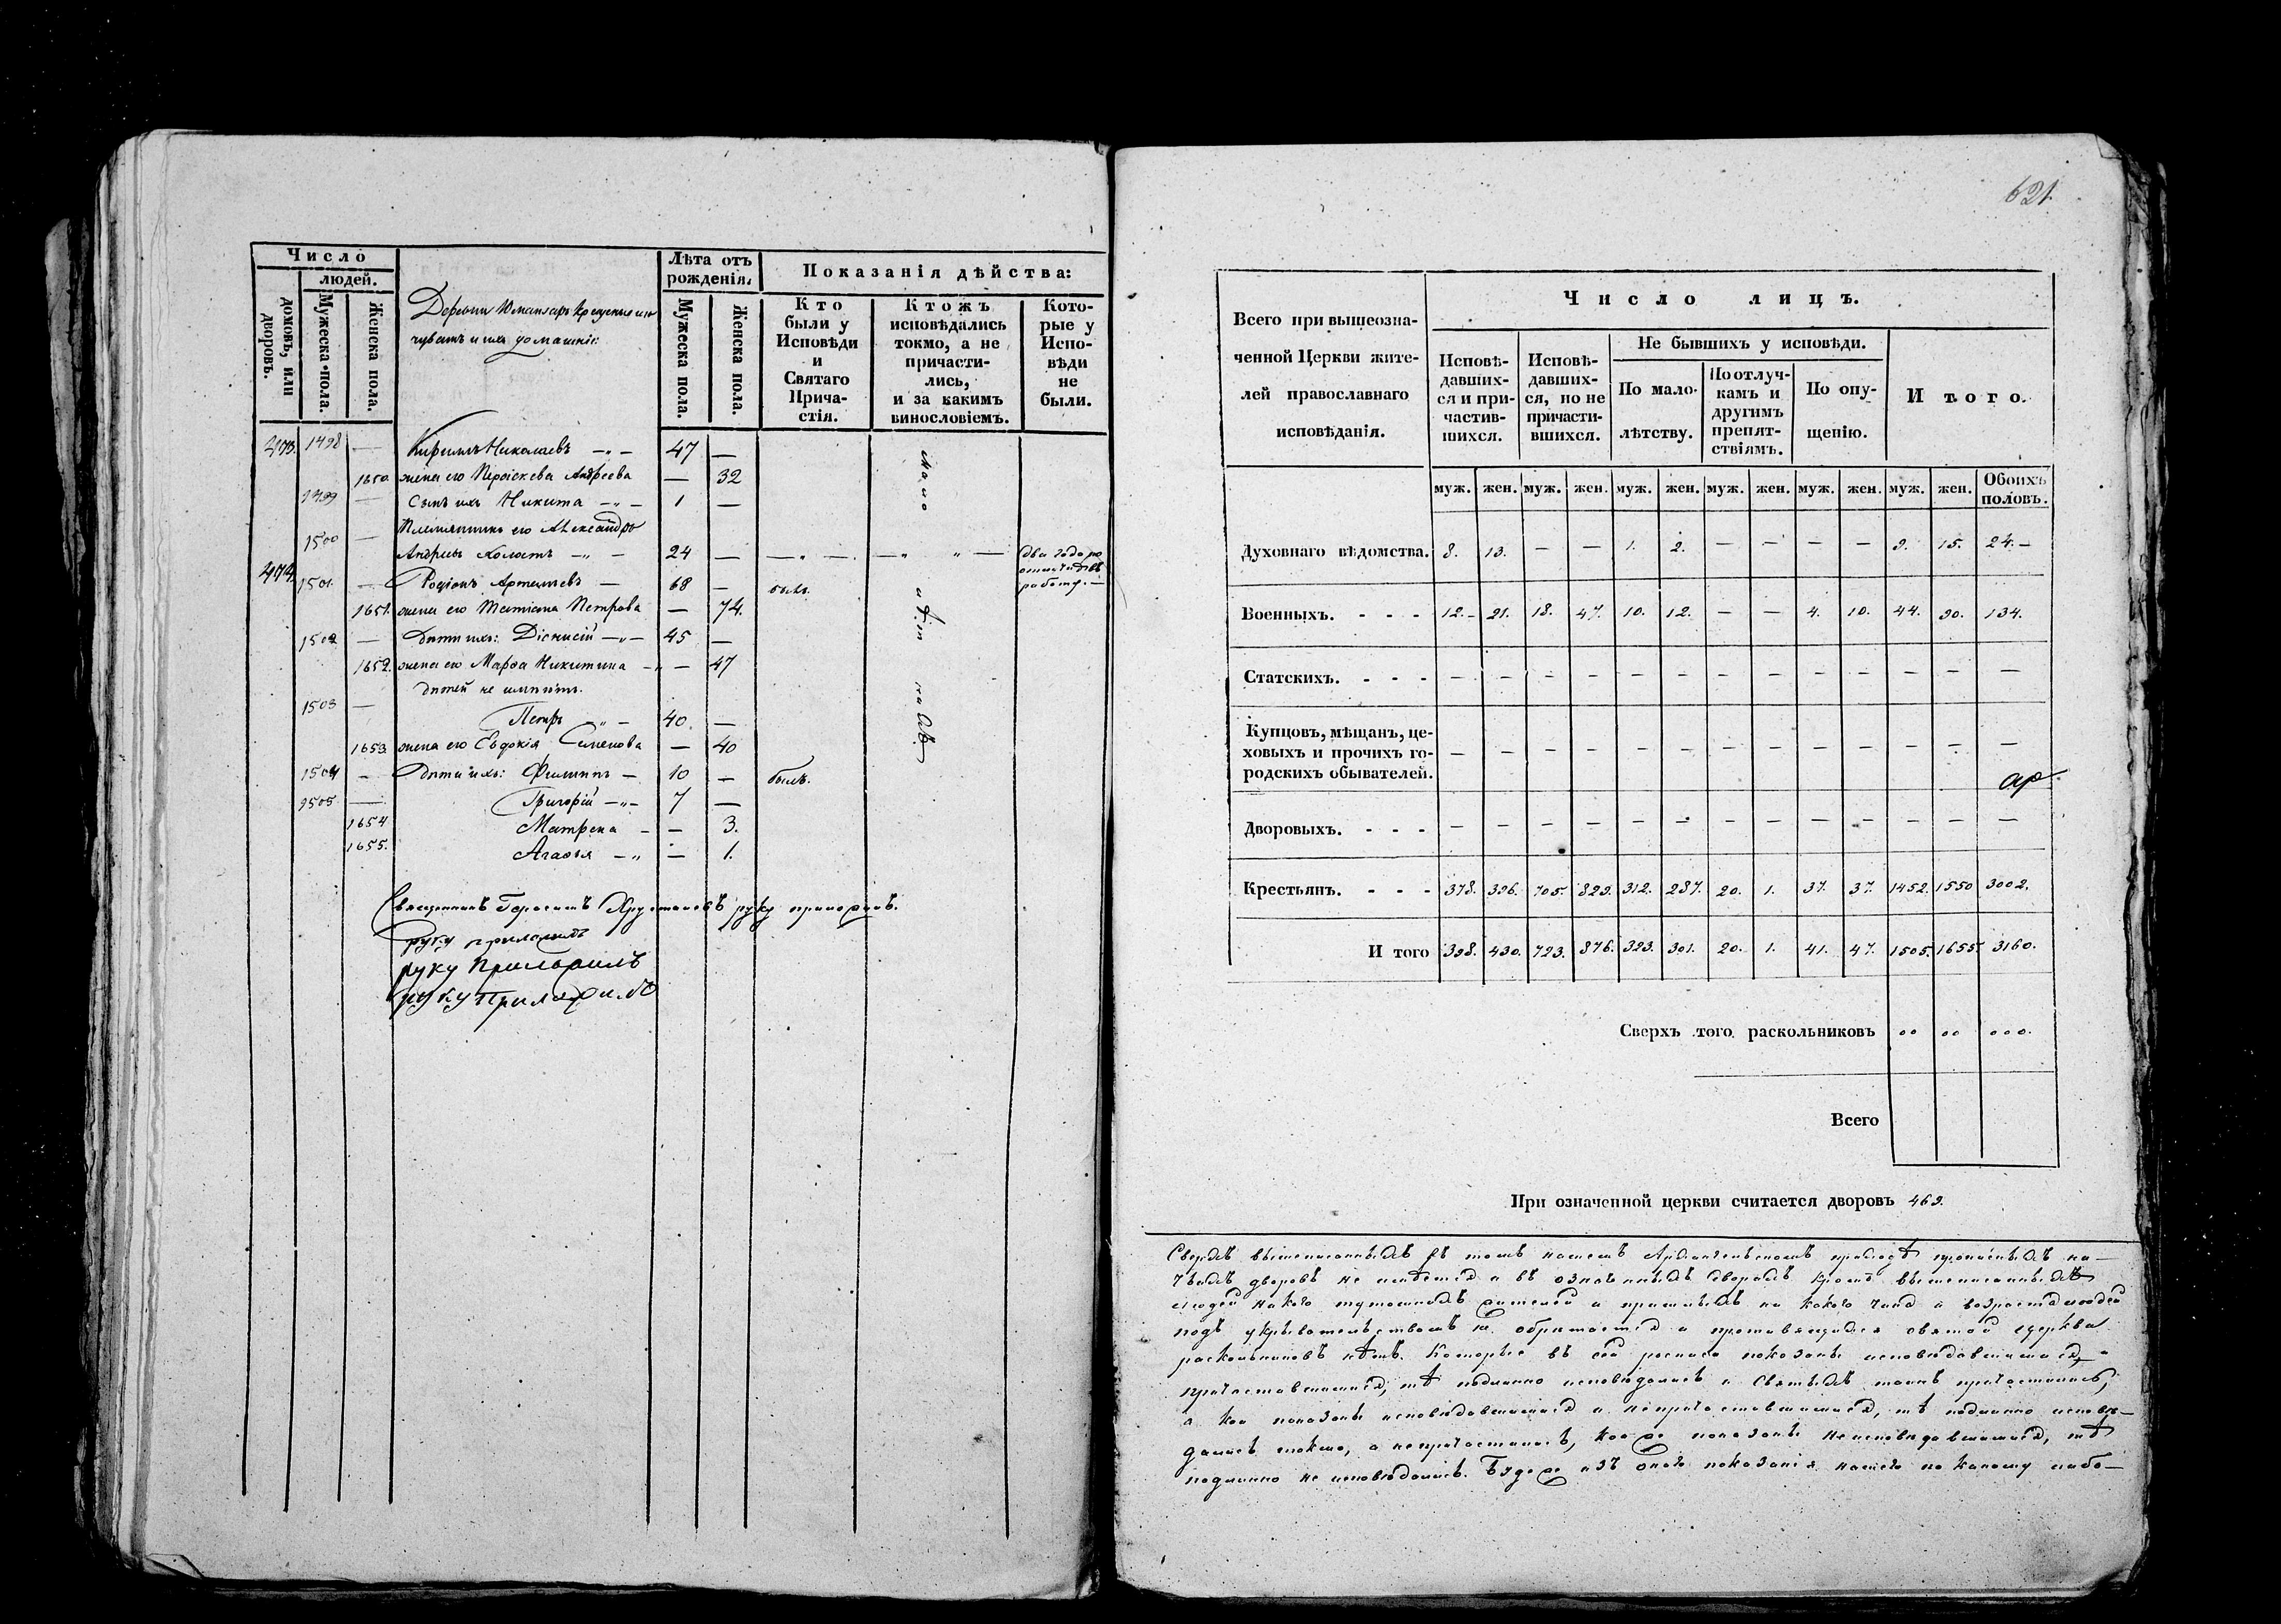 Число
людей.
домовъ, или дворовъ.
Мужеска пола.
Женска пола.
Деревни Юманларъ крещеные изъ
чувашъ и ихъ домашніе
Лѣта отъ
рожденія.
Мужеска пола.
Женска пола.
Показанія дѣйства:
Кто
были у
Исповѣди
и
Святаго
Прича-
стія.
Ктожъ
исповѣдались
токмо, а не
причасти-
лись,
и за какимъ
винословіемъ.
Кото-
рые у
Испо-
вѣди
не
были.
473. 1498 — Кириллъ Николаевъ —„— 47 —
1650. жена его Параскева Андреева — 32
1499 — Сынъ ихъ Никита —„— 1 —
Племянникъ его Александръ
1500 — Андреевъ холостъ —„— 24 — — „ — — „ „ — два года по
474. 1501. — Родіонъ Артемьевъ — 68 — былъ. работу.—
1651. жена его Татіана Петрова — 74.
1502 — Дѣти ихъ: Діонисій —„— 45 —
1652. жена его Марѳа Никитина — — 47
дѣтей не имѣютъ.
1503 — Петръ —„— 40. —
1653. жена его Евдокія Семенова — 40
1504 — Дѣти ихъ: Филиппъ — 10 — былъ.
1505 — Григорій —„— 7 —
1654 Матрена — — 3.
1655. Агаѳья —„ — 1.
Священникъ Герасимъ Хрусталевъ руку приложилъ.
руку приложилъ
руку приложилъ
руку приложилъ
621.
Всего при вышеозна-
ченной Церкви жите-
лей православнаго
исповѣданія.
Число лицъ.
Исповѣ-
давших-
ся и при-
частив-
шихся.
Исповѣ-
давших-
ся, но не
причасти-
вшихся.
Не бывшихъ у исповѣди.
По мало-
лѣтству.
По отлуч-
камъ и
другимъ
препят-
ствіямъ.
По опу-
щенію.
И того.
муж. жен. муж. жен. муж. жен. муж. жен. муж. жен. муж. жен. Обоихъ
половъ.
Духовнаго вѣдомства. 8. 13. — — 1. 2. — — — — 9. 15. 24.—
Военныхъ. - - - 12.— 21. 18. 47. 10. 12. — — 4. 10. 44. 90. 134.
Статскихъ. - - - — — — — — — — — — — — — —
Купцовъ, мѣщанъ, це-
ховыхъ и прочихъ го-
родскихъ обывателей. — — — — — — — — — — — — —
Дворовыхъ. - - - — — — — — — — — — — — — —
Крестьянъ. - - - 378. 396. 705. 829. 312. 287. 20. 1. 37. 37. 1452. 1550 3002.
И того 398. 430. 723. 876. 323. 301. 20. 1. 41. 47. 1505. 1655. 3160.
Сверхъ того раскольниковъ оо оо ооо.
Всего
При означенной церкви считается дворовъ 469.
Сверхъ вышеписанныхъ въ томъ нашемъ Архангельскомъ приходѣ прописныхъ ни-
чьихъ дворовъ не имѣется и въ означенныхъ дворахъ кромѣ вышеписанныхъ
людей никого тутошнихъ жителей и пришлыхъ ни какого чина и возраста людей
подъ укрывательствомъ не обрѣтается и противящихся святой церкви
раскольниковъ нѣтъ. Которые въ сей росписи показаны исповѣдавшимися и
причастившимися, тѣ подлинно исповѣдались и Святыхъ таинъ причастились,
а кои показаны исповѣдавшимися и непричастившимися, тѣ подлинно исповѣ-
дались токмо, а непричастились, кои же показаны неисповѣдавшимися, тѣ
подлинно не исповѣдались. Буде же изъ онаго показанія нашего по какому либо—